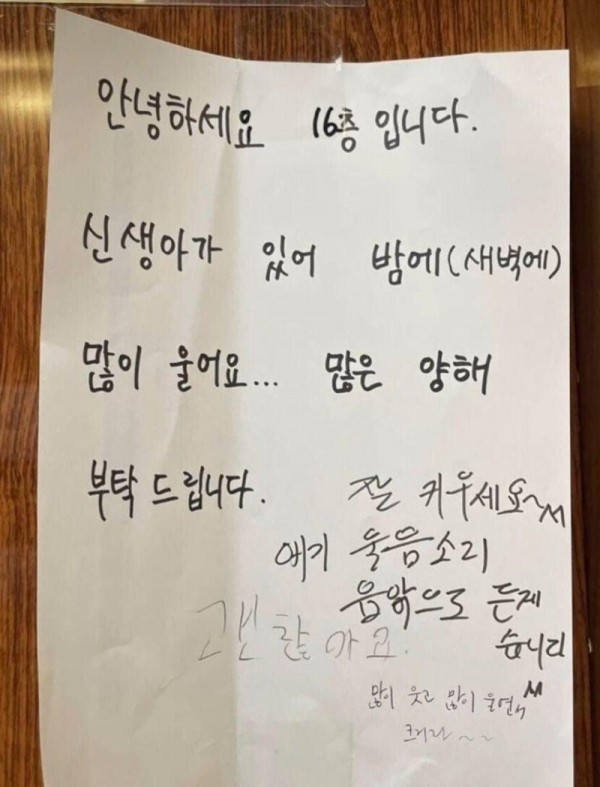 안녕하세요 16층 입니다.
신생아가 있어 밤에(새벽에)
많이 울어요... 많은 양해
부탁 드립니다.
잘 키우세요~^^
애기 울음소리
음악으로 듣겠
습니다
괜찮아요.
많이 웃고 많이 울면서 ^^
크거라~~